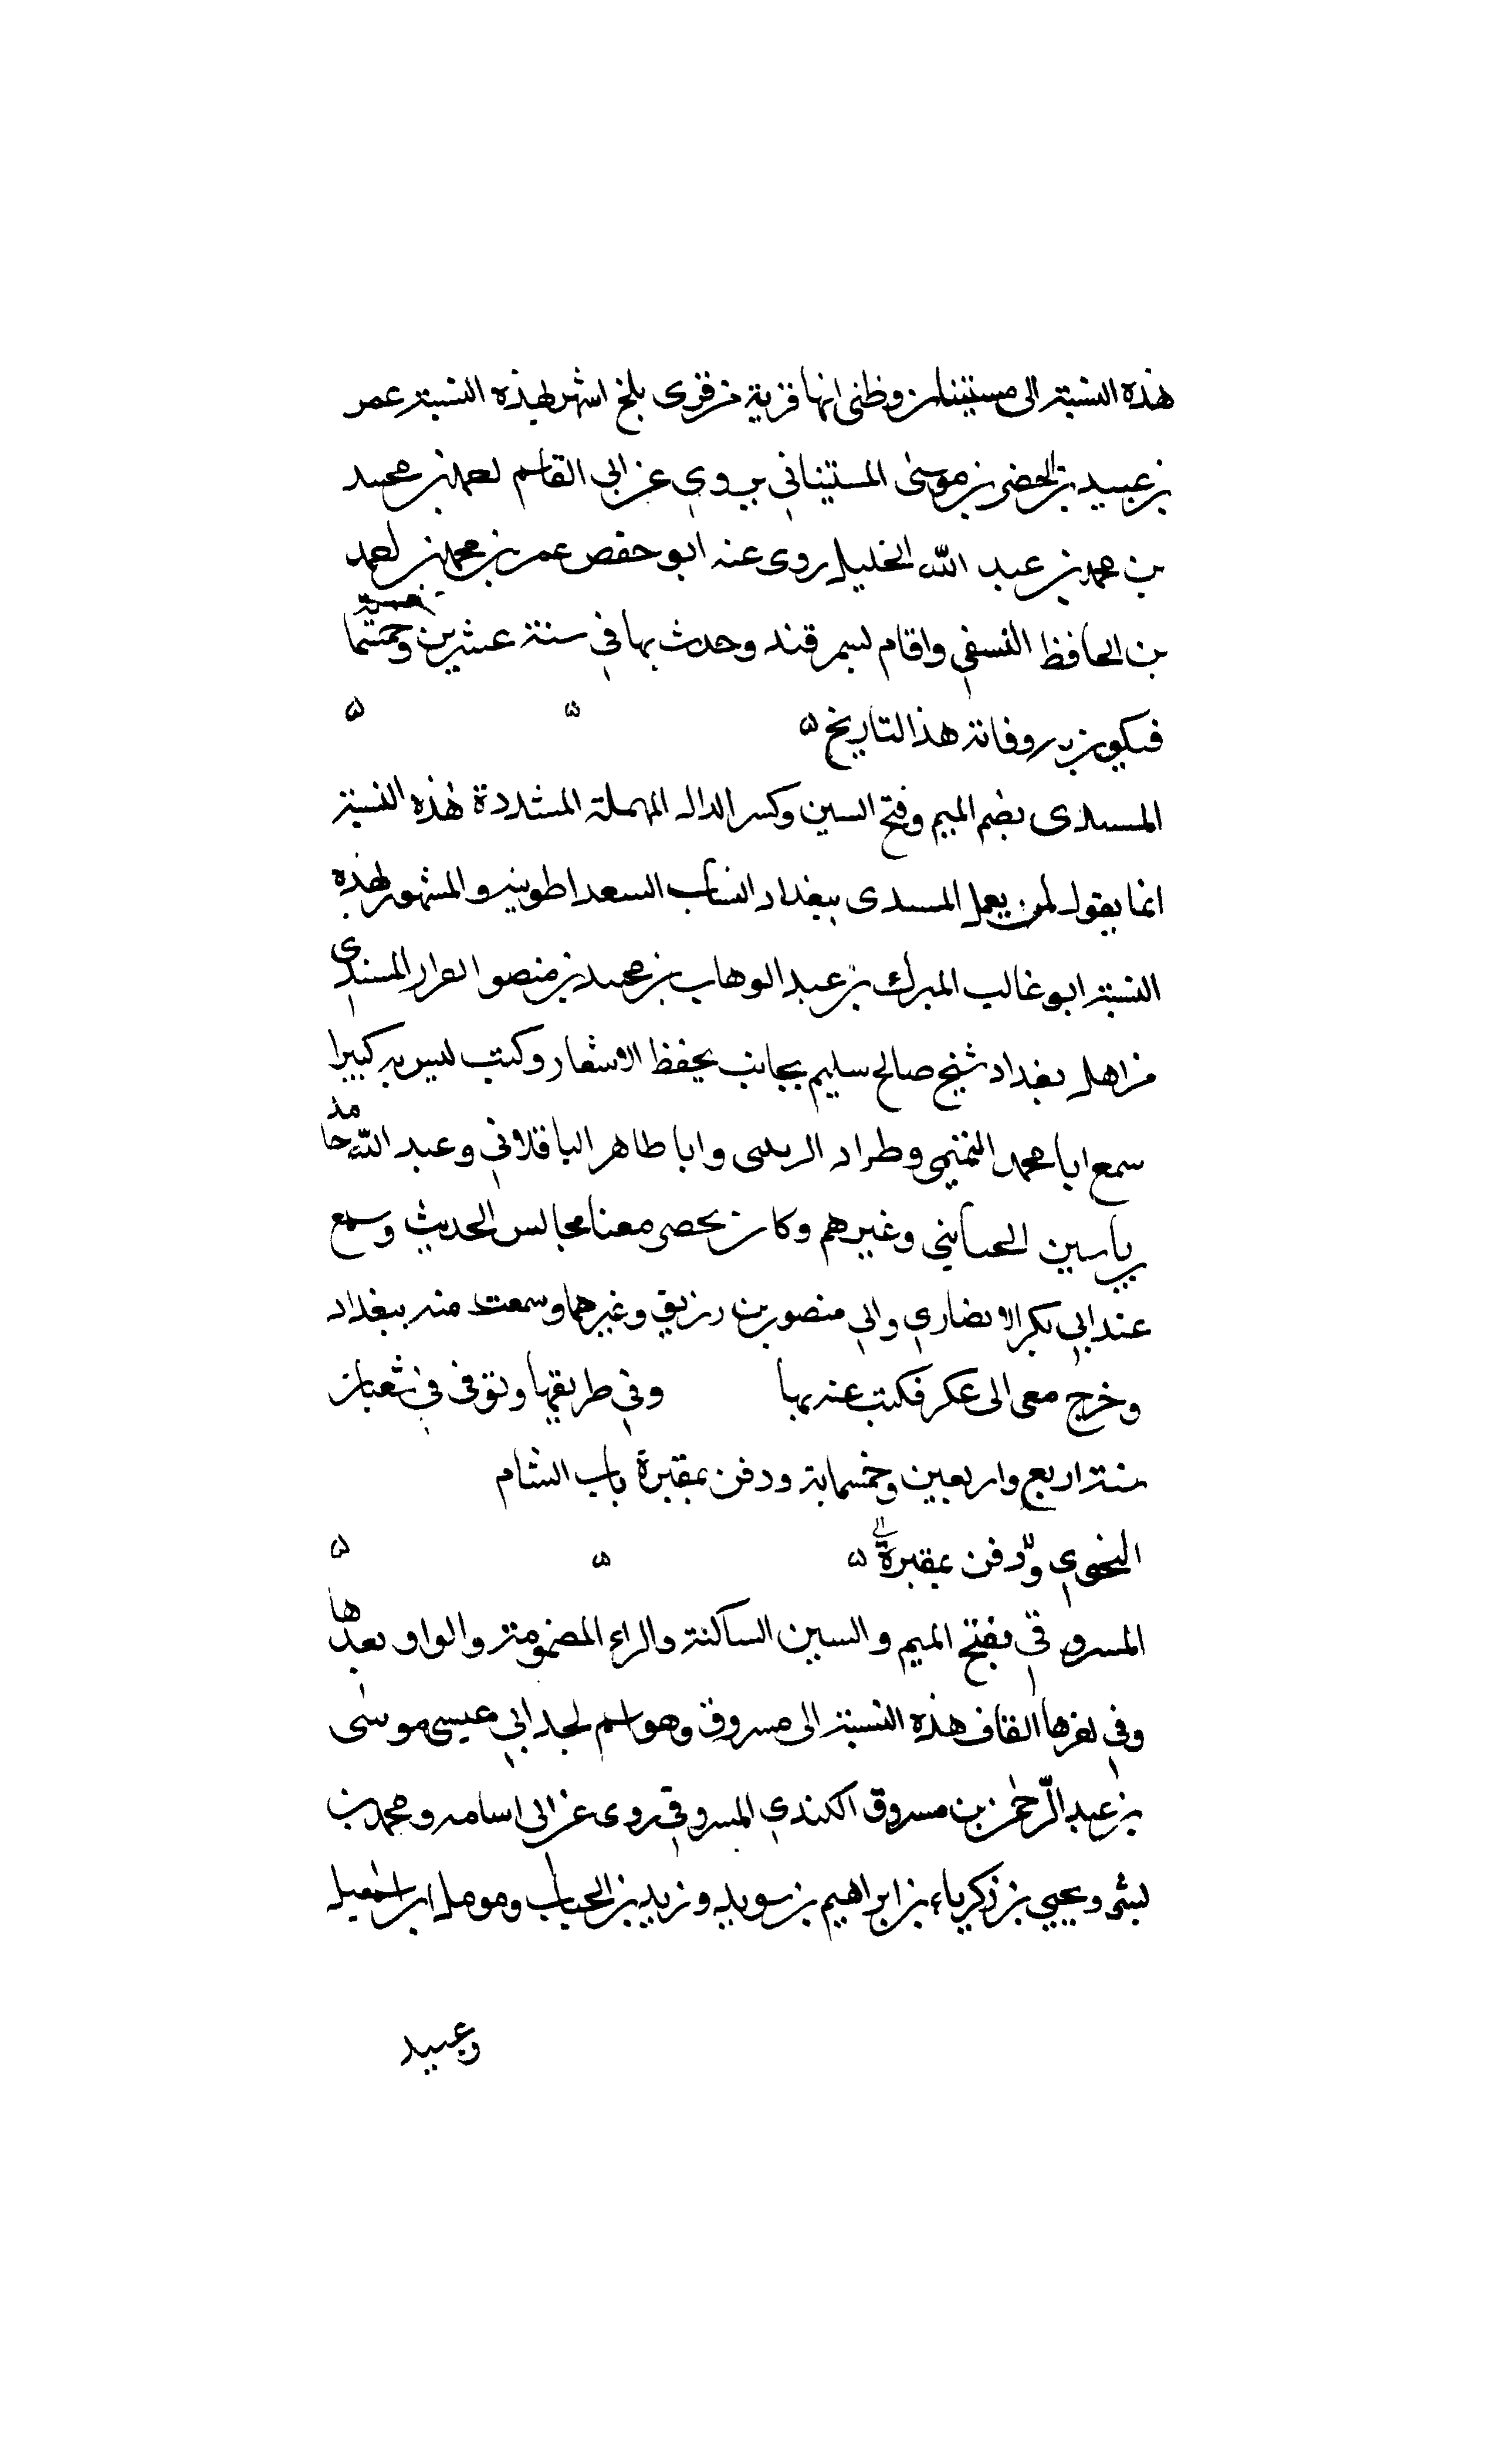 هذه النسبة الى مستينان وظني انها قرية من قرى بلخ اشهر بهذه النسبة عمر
بن عبيد بن الخضر بن موسى المستيناني يروي عن ابى القاسم احمد بن محمد
بن محمد بن عبد الله الخليل روى عنه ابو حفص عمر بن محمد بن احمد
بن الحافظ النسفي واقام بسمرقند وحدث بها في سنة عشرين وخمسمائة
فيكون وفاته هذا التاريخ ٥ ٥ ٥
المسدى بضم الميم وفتح السين وكسر الدال المهملة المشددة هذه النسبة
انما يقول لمن يعمل المسدى ببغداد السعد اطوينه والمشهور بهذه
النسبة ابو غالب المبرك بن عبد الوهاب بن محمد بن منصور المسندي
من اهل بغداد شيخ صالح سليم بجانب يحفظ الاشعار وكتب ليس به كبيرا
سمع ابا محمد التميمي وطراد الزينبى وابا طاهر الباقلاني وعبد الله حامد
ياسين الحسابني وغيرهم وكان يحضر معنا مجالس الحديث وسمع
عند ابي بكر الانصاري وابي منصور بن رزيق وغيرهما وسمعت منه ببغداد
وخرج معى الى عكبر فكتب عنه بها وفي طريقها وتوفى في شعبان
سنة اربع واربعين وخمسماية ودفن بمقبرة باب الشام
النحوي ودفن بمقبرة الى ٥ ٥ ٥
المسروقي بفتح الميم والسين الساكنة والراء المضمومة والواو بعدها
وفي اخرها القاف هذه النسبة الى مسروق وهو اسم لجد ابي عيسى موسى
بن عبد الرحمن بن مسروق الكندي المسروقي روى عن ابى اسامه ومحمد بن
بشر ويحيي بن زكرياء بن ابراهيم بن سويد وزيد بن الحباب ومومل بن اسمعيل
وعبيد